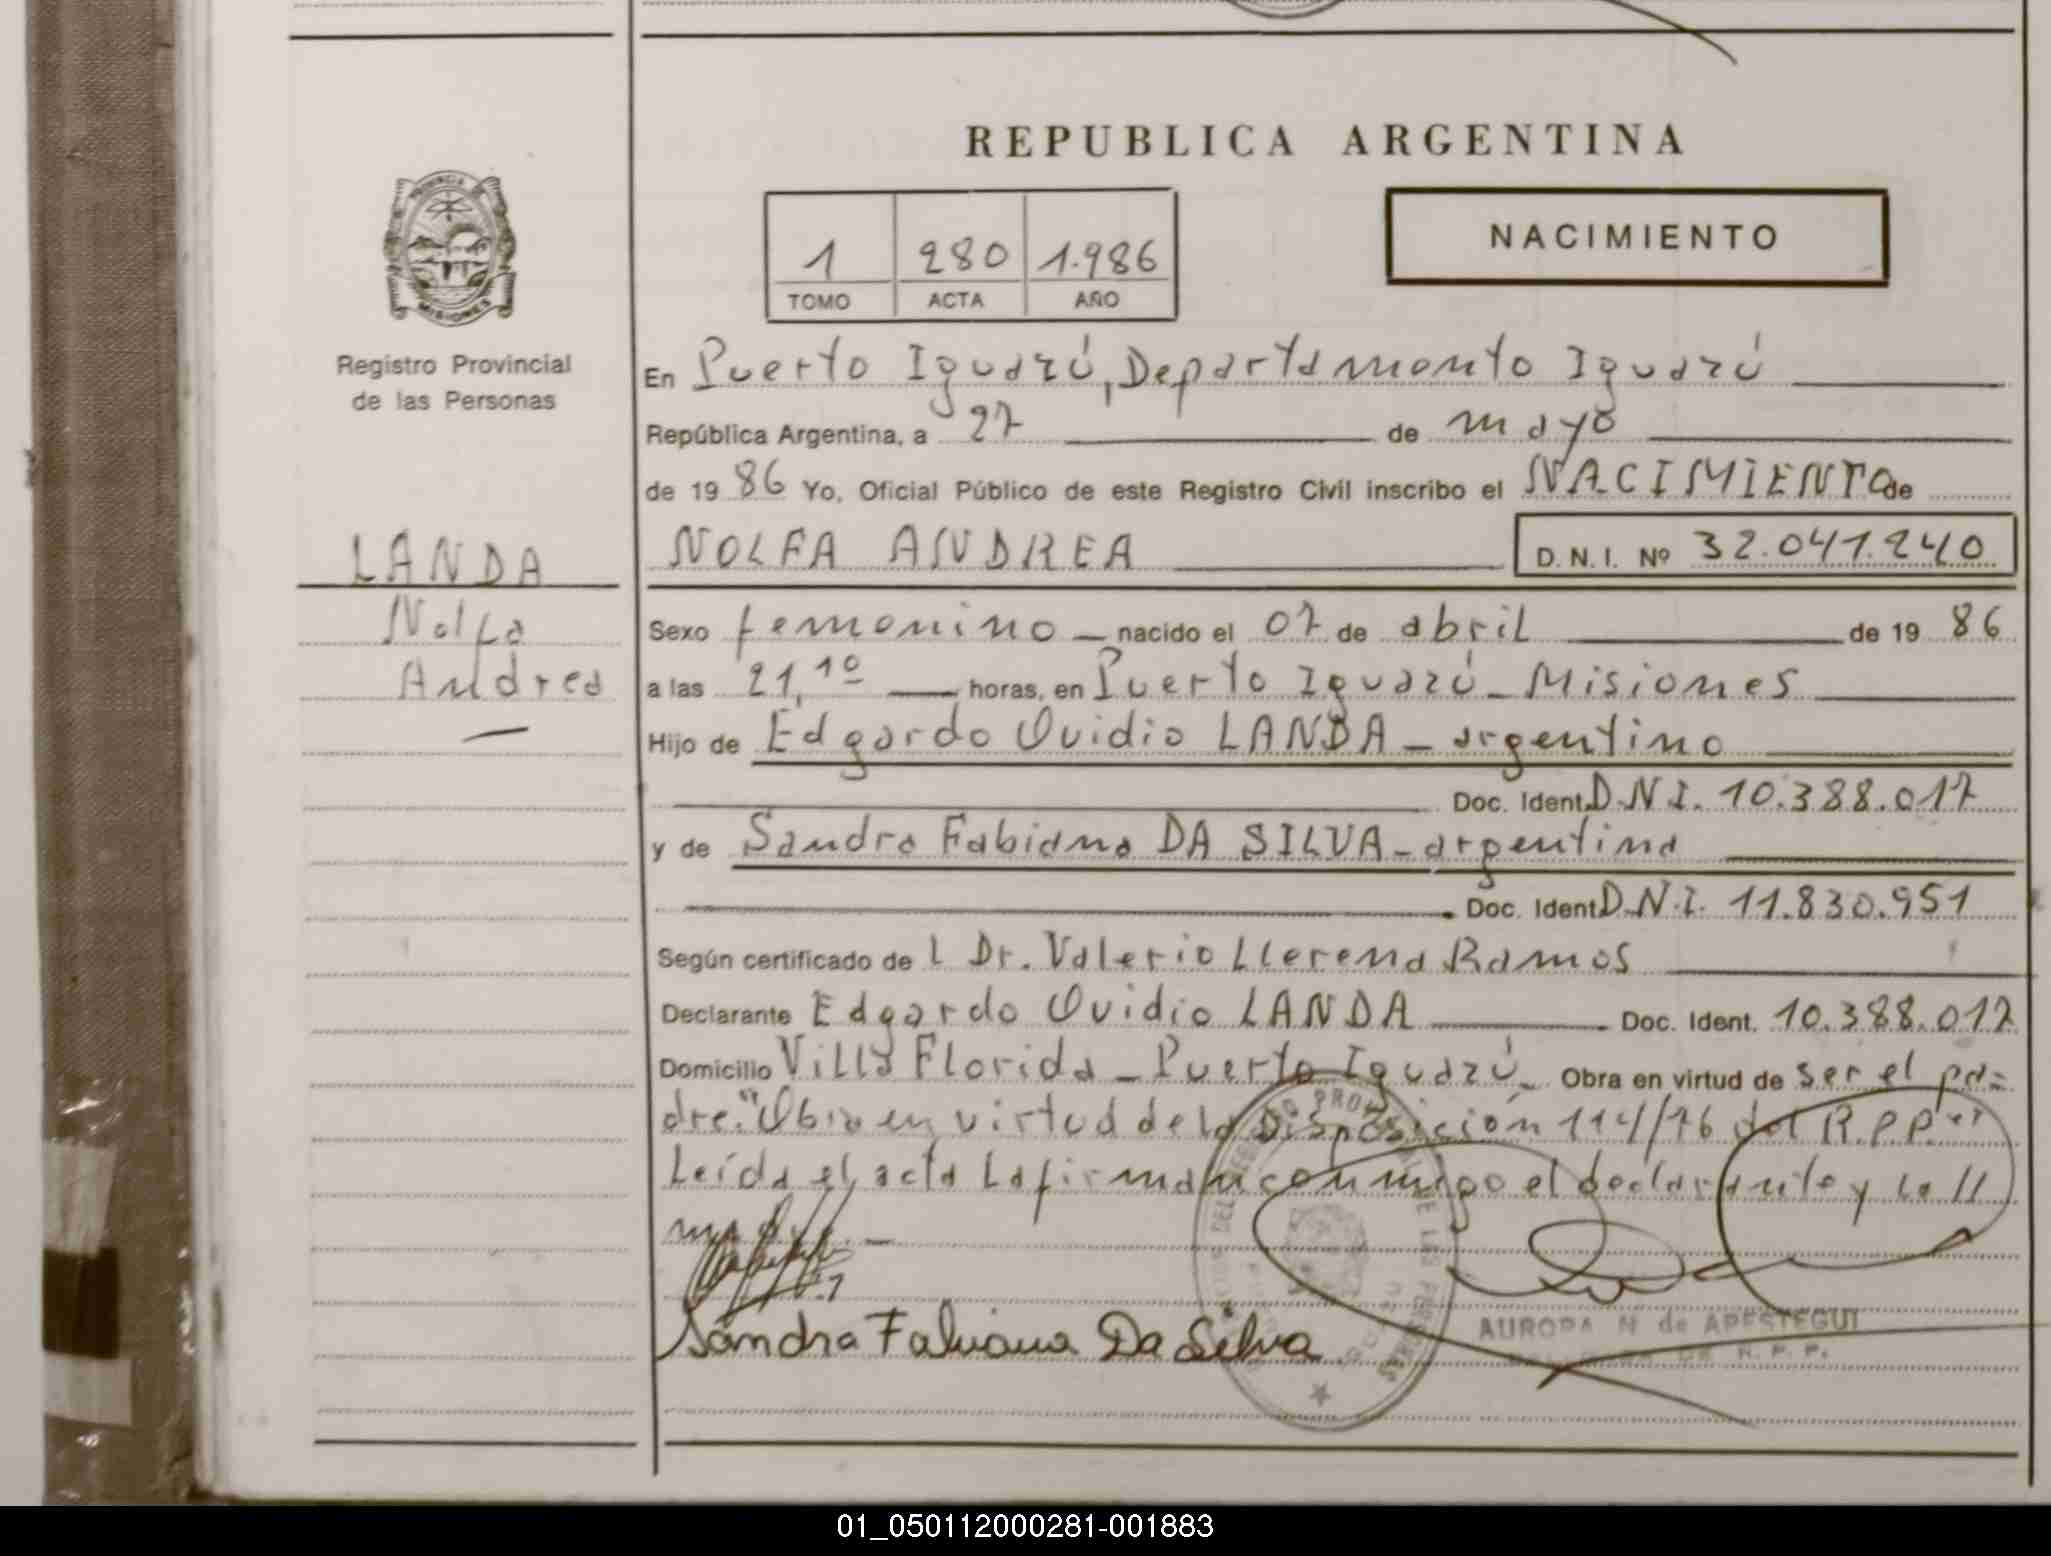 REPUBLICA ARGENTINA
NACIMIENTO
1 280 1.986
TOMO ACTA AÑO
PROVINCIA DE
MISIONES
Registro Provincial
de las Personas
En Puerto Iguazú, Departamento Iguazú
República Argentina, a 27 de mayo
de 1986 Yo, Oficial Público de este Registro Civil inscribo el NACIMIENTO de
NOLFA ANDREA D.N.I. Nº 32.041.240
LANDA
Nolfa
Andrea
Sexo femenino nacido el 07 de abril de 1986
a las 21,10 horas, en Puerto Iguazú - Misiones
Hijo de Edgardo Ovidio LANDA - argentino
Doc. Ident. D.N.I. 10.388.017
y de Sandra Fabiana DA SILVA - argentina
Doc. Ident. D.N.I. 11.830.951
Según certificado del Dr. Valerio Llerena Ramos
Declarante Edgardo Ovidio LANDA Doc. Ident. 10.388.017
Domicilio Villa Florida - Puerto Iguazú - Obra en virtud de ser el pa=
dre. "Obra en virtud de la Disposición 114/76 del R.P.P."
Leída el acta la firman conmigo el declarante y la
Sandra Fabiana Da Silva
AUROPA N de APESTEGUI
R. P. P.
01_050112000281-001883